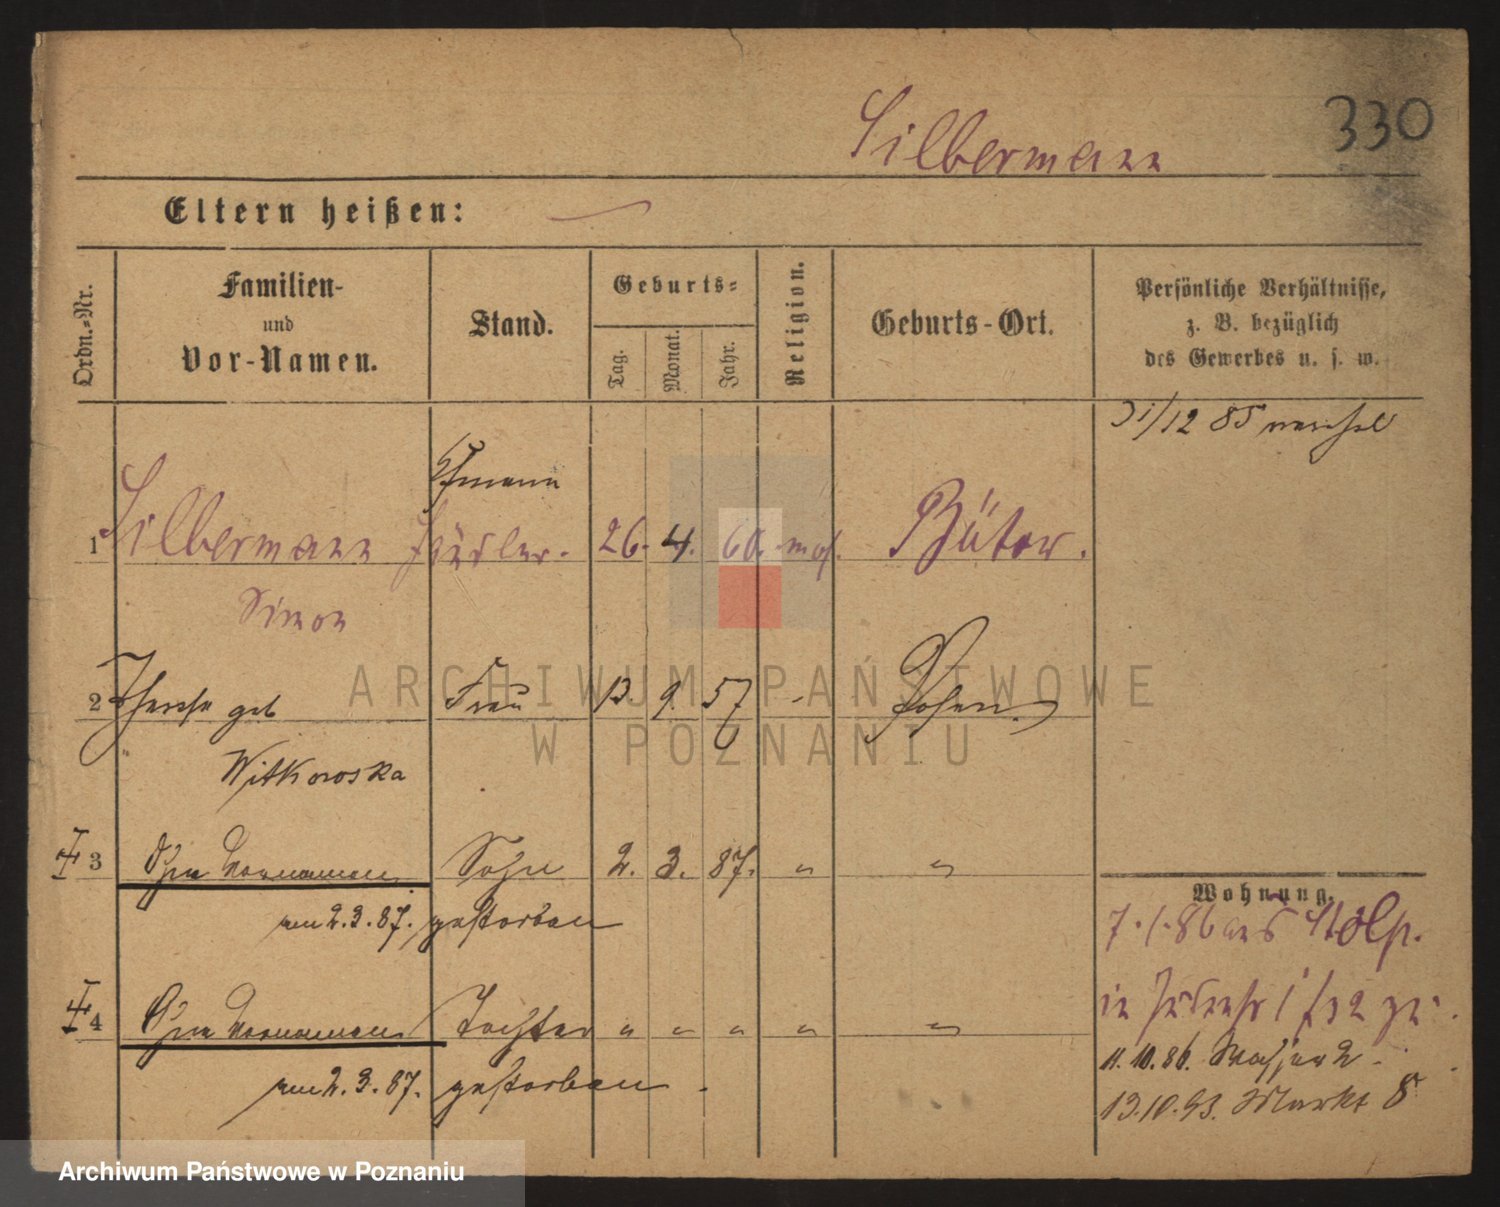 330
Silbermann
Eltern heißen:
Ordn.-Nr.
Familien-
und
Vor-Namen.
Stand.
Geburts-
Tag.
Monat.
Jahr.
Religion.
Geburts-Ort.
Persönliche Verhältnisse,
z. B. bezüglich
des Gewerbes u. s. w.
31/12 85
Ehmann
1 Silbermann 26. 4. 60. mos. Bütow.
Simon
2 Therese geb Frau 13. 9. 57 - Posen.
Witkowska
3 Ohne Vornamen Sohn 2. 3. 87. " "
am 2. 3. 87. gestorben
4 Ohne Vornamen Tochter " " " " "
am 2. 3. 87. gestorben.
Wohnung.
7. 1. 86 aus Stolp.
11. 10. 86. Wasser 2.
13. 10. 93. Markt 8
ARCHIWUM PAŃSTWOWE
W POZNANIU
Archiwum Państwowe w Poznaniu